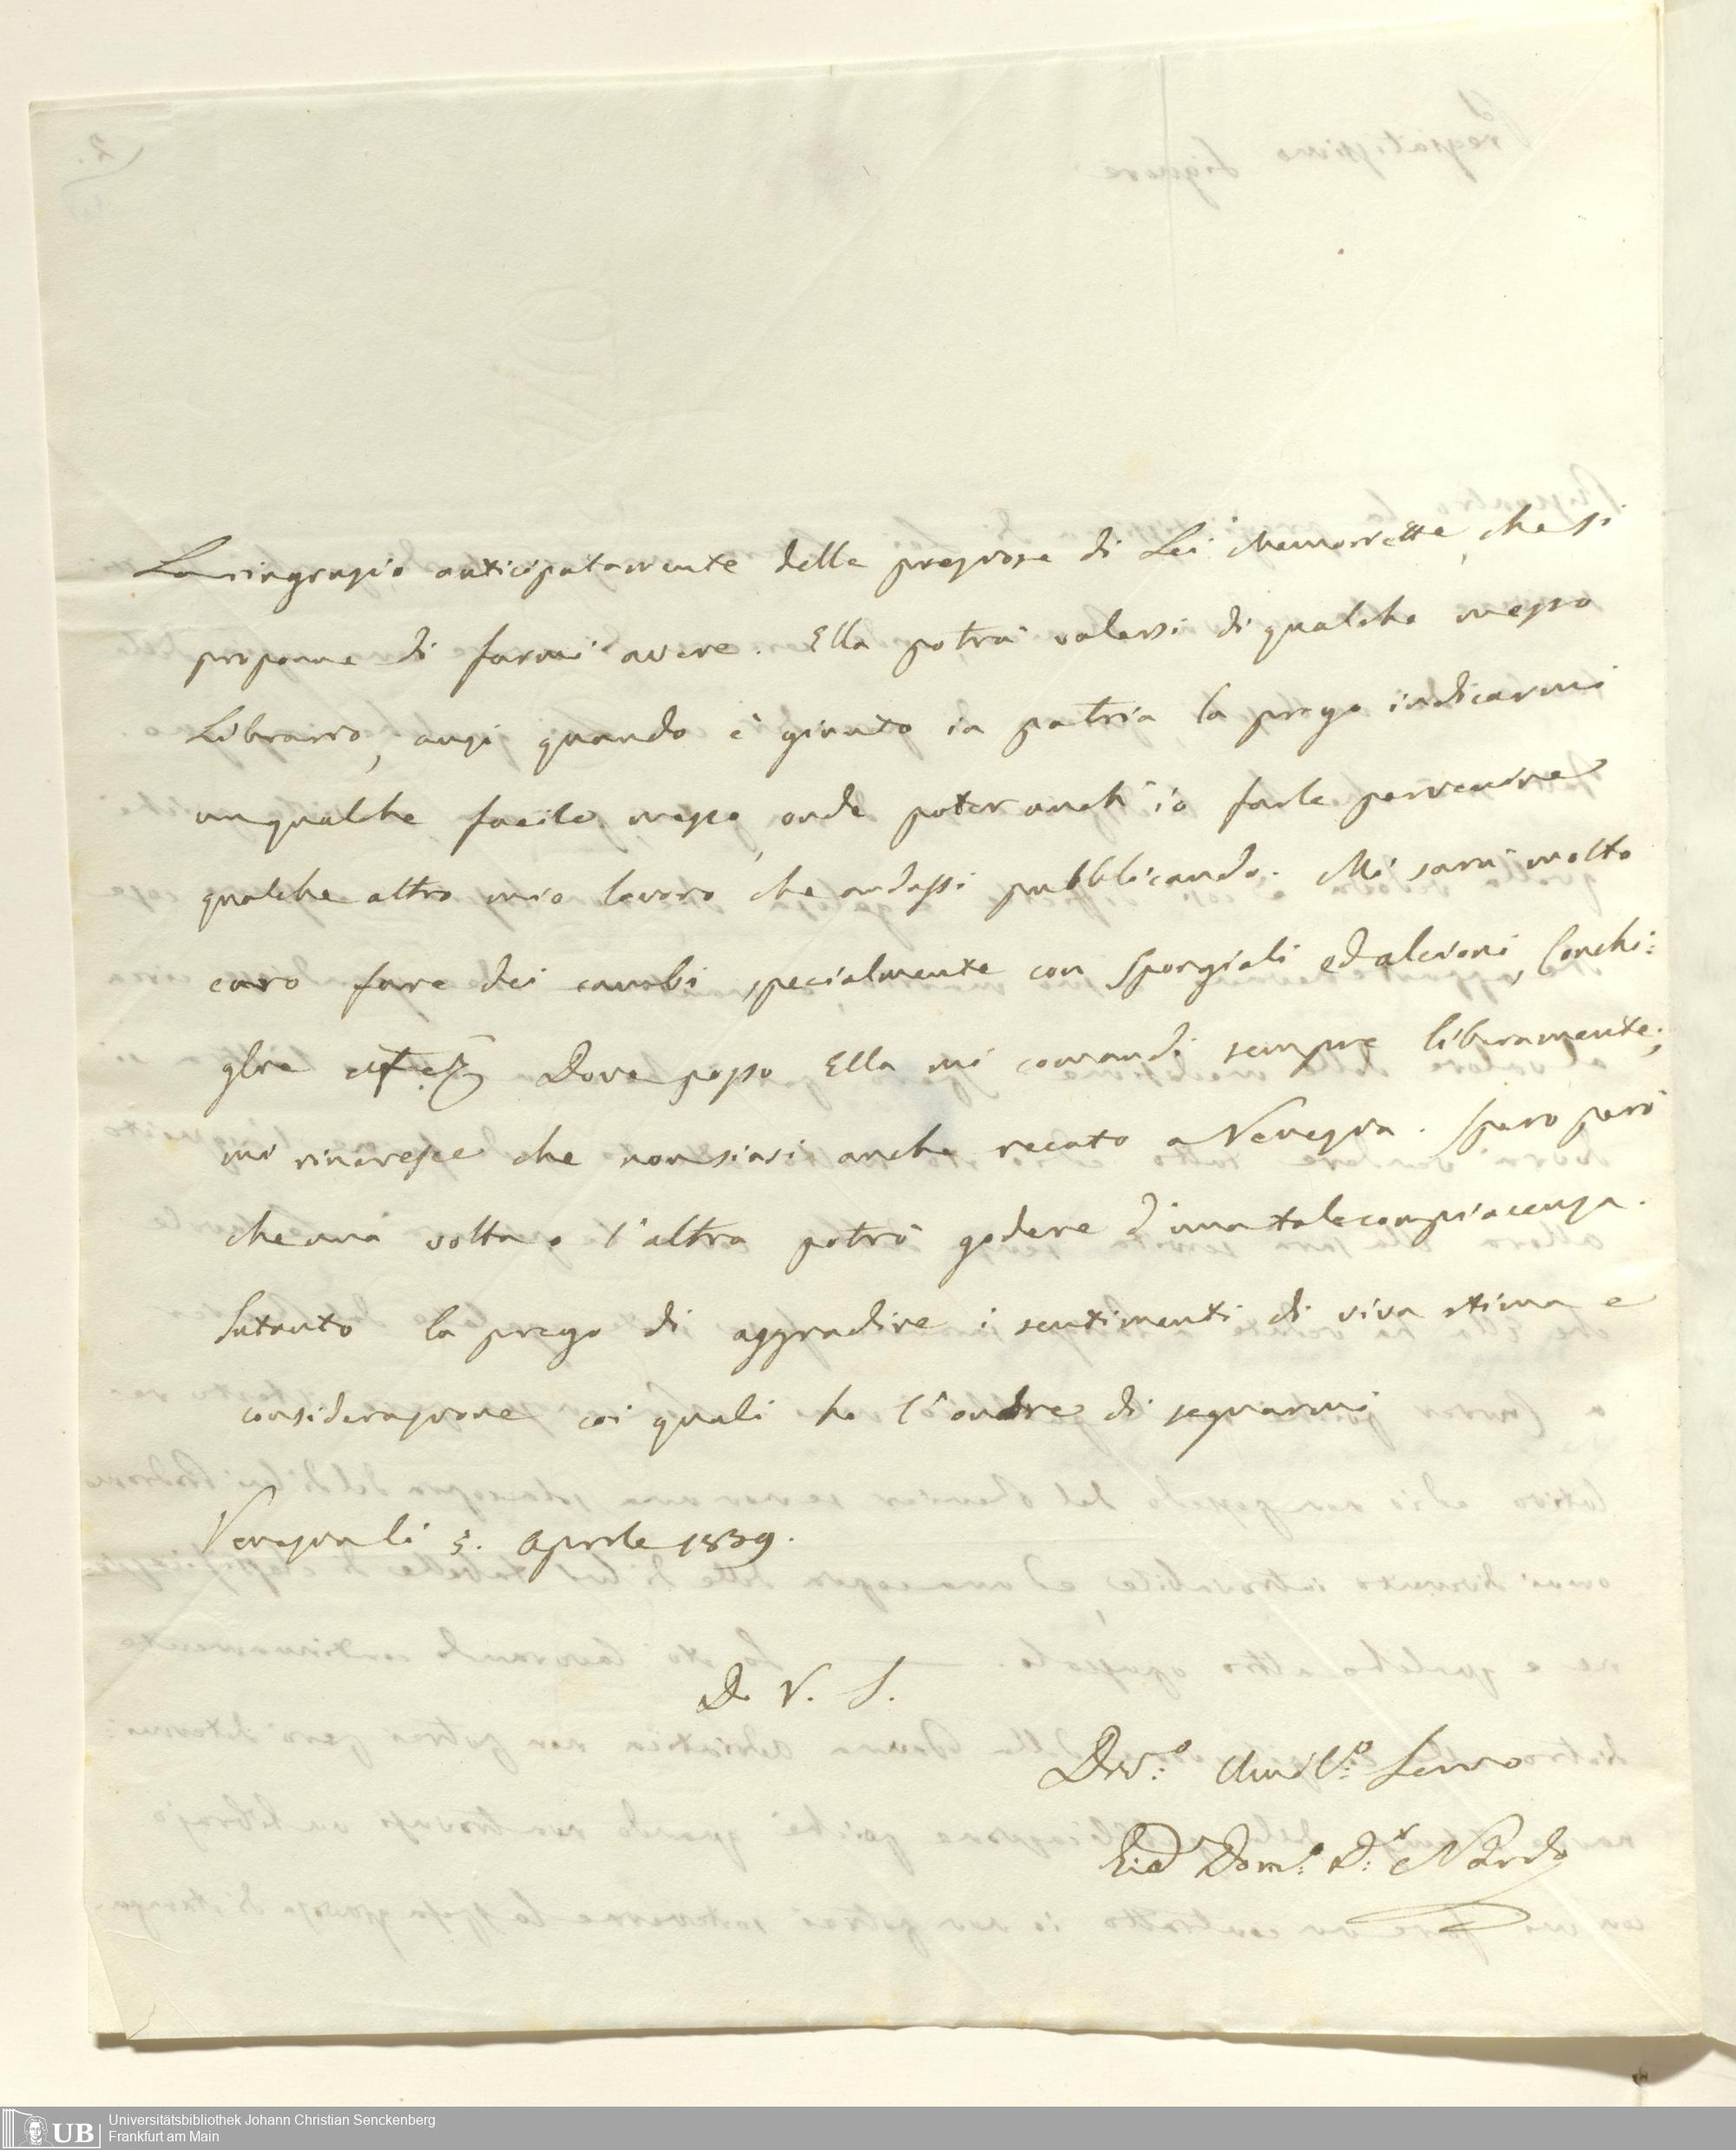 La ringrazio anticipatamente delle preziose di Lei Memoriette, che si
propone di farmi avere. Ella potrà valersi di qualche mezzo
Librario, anzi quando è giunto in patria la prego indicarmi
un qualche facile mezzo, onde poter anch'io farle pervenire
qualche altro mio lavoro che andassi pubblicando. Mi sarà molto
caro fare dei cambi specialmente con Spongiali ed alcioni, Conchi:
glie Dove posso Ella mi comandi sempre liberamente;
mi rincresce che non siasi anche recato a Venezia. Spero però
che una volta o l'altra potrò godere d'una tale compiacenza.
Intanto la prego di aggradire i sentimenti di viva stima e
considerazione coi quali ho l'onore di segnarmi
Venezia li 5. Aprile 1839.
Di V. S.
Div:o Amil:o Servo
Gio Dom:o D:r Nardo
UB Universitätsbibliothek Johann Christian Senckenberg
Frankfurt am Main